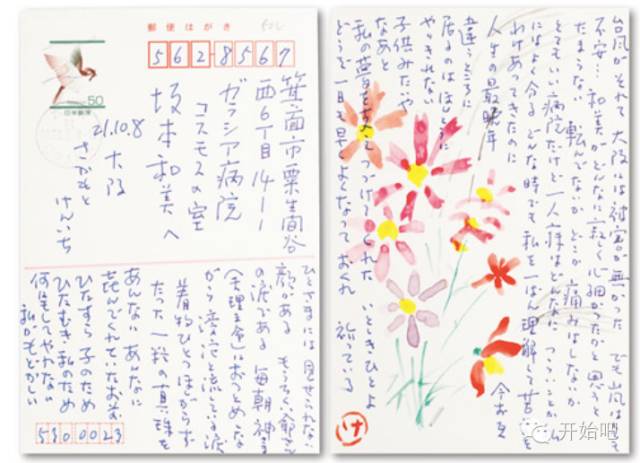 郵便はがき
562-8567
50
日本郵便
箕面市粟生間谷
西6丁目14ー1
ガラシア病院
コスモスの室
坂本和美へ
21.10.8
大阪
さかもと
けんいち
ひとさまには見せられない
顔がある
の涙である 毎朝神様
がら滂沱と流している涙
着物ひとつほしがらず
たった一粒の真珠を
あんなに あんなに
喜んでくれていたお前
ひたすら子のため
ひたむき私のため
何にもしてやれない
私がもどかしい
530 0023
台風がそれて大阪には被害が無かった でも台風は
不安… 和美がどんなに寂しく心細かったかと思うと
たまらない 転んでないか どこか痛みはしないか
とてもいい病院だけど一人病はどんなにつらいことか
にはよく今る どんな時でも私を一ばん理解して苦楽を
わけあってきたのに
人生の最晩年
違うところに
居るのはほんとうに
やりきれない
子供みたいや
なあと
今お互
私の夢をずっとつづけてくれた いとしきひとよ
どうぞ一日も早くよくなっておくれ 祈っている
け
开始吧